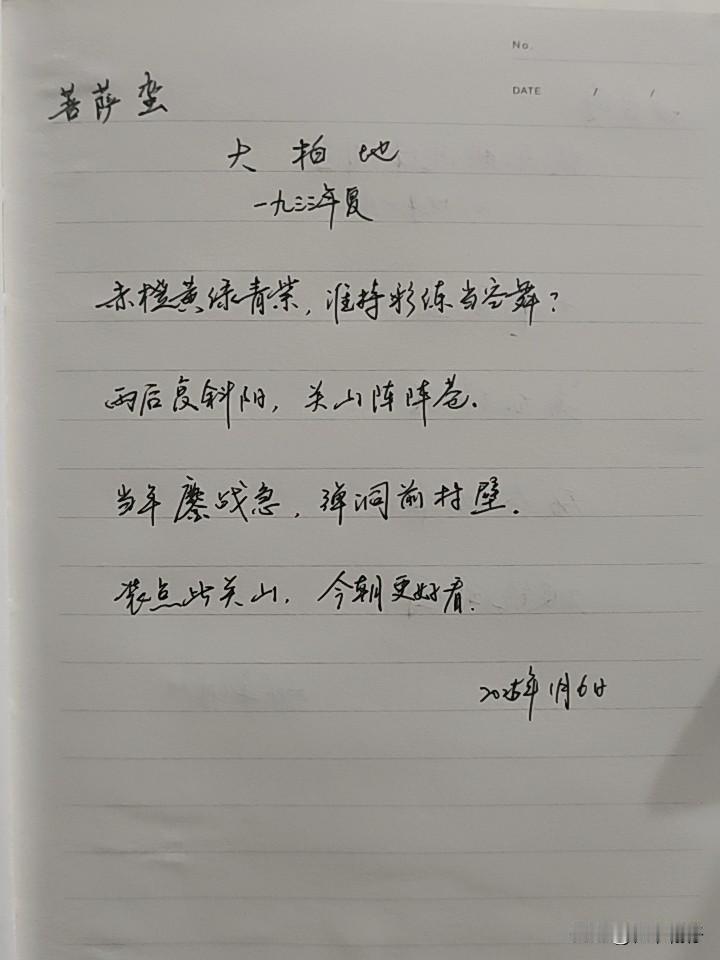 No.
DATE / /
菩萨蛮
大柏地
一九三三年夏
赤橙黄绿青紫，谁持彩练当空舞？
雨后复斜阳，关山阵阵苍.
当年鏖战急，弹洞前村壁.
装点此关山，今朝更好看.
2025年1月6日